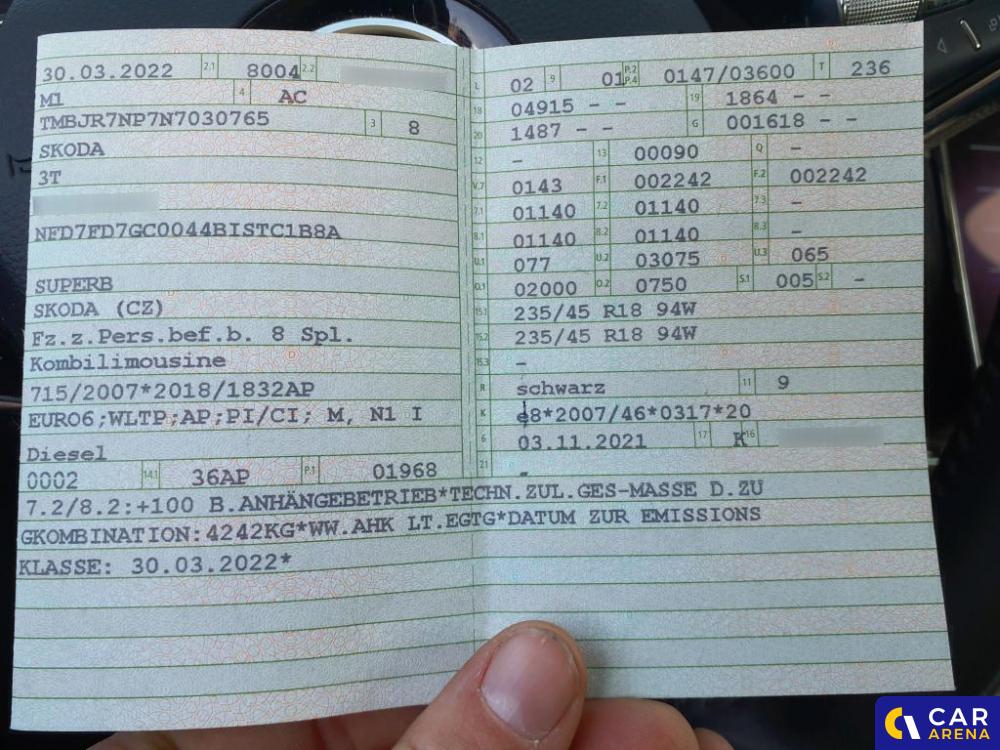 30.03.2022 2.1 8004 2.2
M1 4 AC
TMBJR7NP7N7030765 3 8
SKODA
3T
NFD7FD7GC0044BISTC1B8A
SUPERB
SKODA (CZ)
Fz.z.Pers.bef.b. 8 Spl.
Kombilimousine
715/2007*2018/1832AP
EURO6;WLTP;AP;PI/CI; M, N1 I
Diesel
0002 14.1 36AP P.1 01968
L 02 9 01 P.2 P.4 0147/03600 T 236
18 04915 - - 19 1864 - -
20 1487 - - G 001618 - -
12 - 13 00090 Q -
V.7 0143 F.1 002242 F.2 002242
7.1 01140 7.2 01140 7.3 -
8.1 01140 8.2 01140 8.3 -
U.1 077 U.2 03075 U.3 065
O.1 02000 O.2 0750 S.1 005 S.2 -
15.1 235/45 R18 94W
15.2 235/45 R18 94W
15.3 -
R schwarz 11 9
K e8*2007/46*0317*20
6 03.11.2021 17 K 16
21 -
7.2/8.2:+100 B.ANHÄNGEBETRIEB*TECHN.ZUL.GES-MASSE D.ZU
GKOMBINATION:4242KG*WW.AHK LT.EGTG*DATUM ZUR EMISSIONS
KLASSE: 30.03.2022*
CAR
ARENA